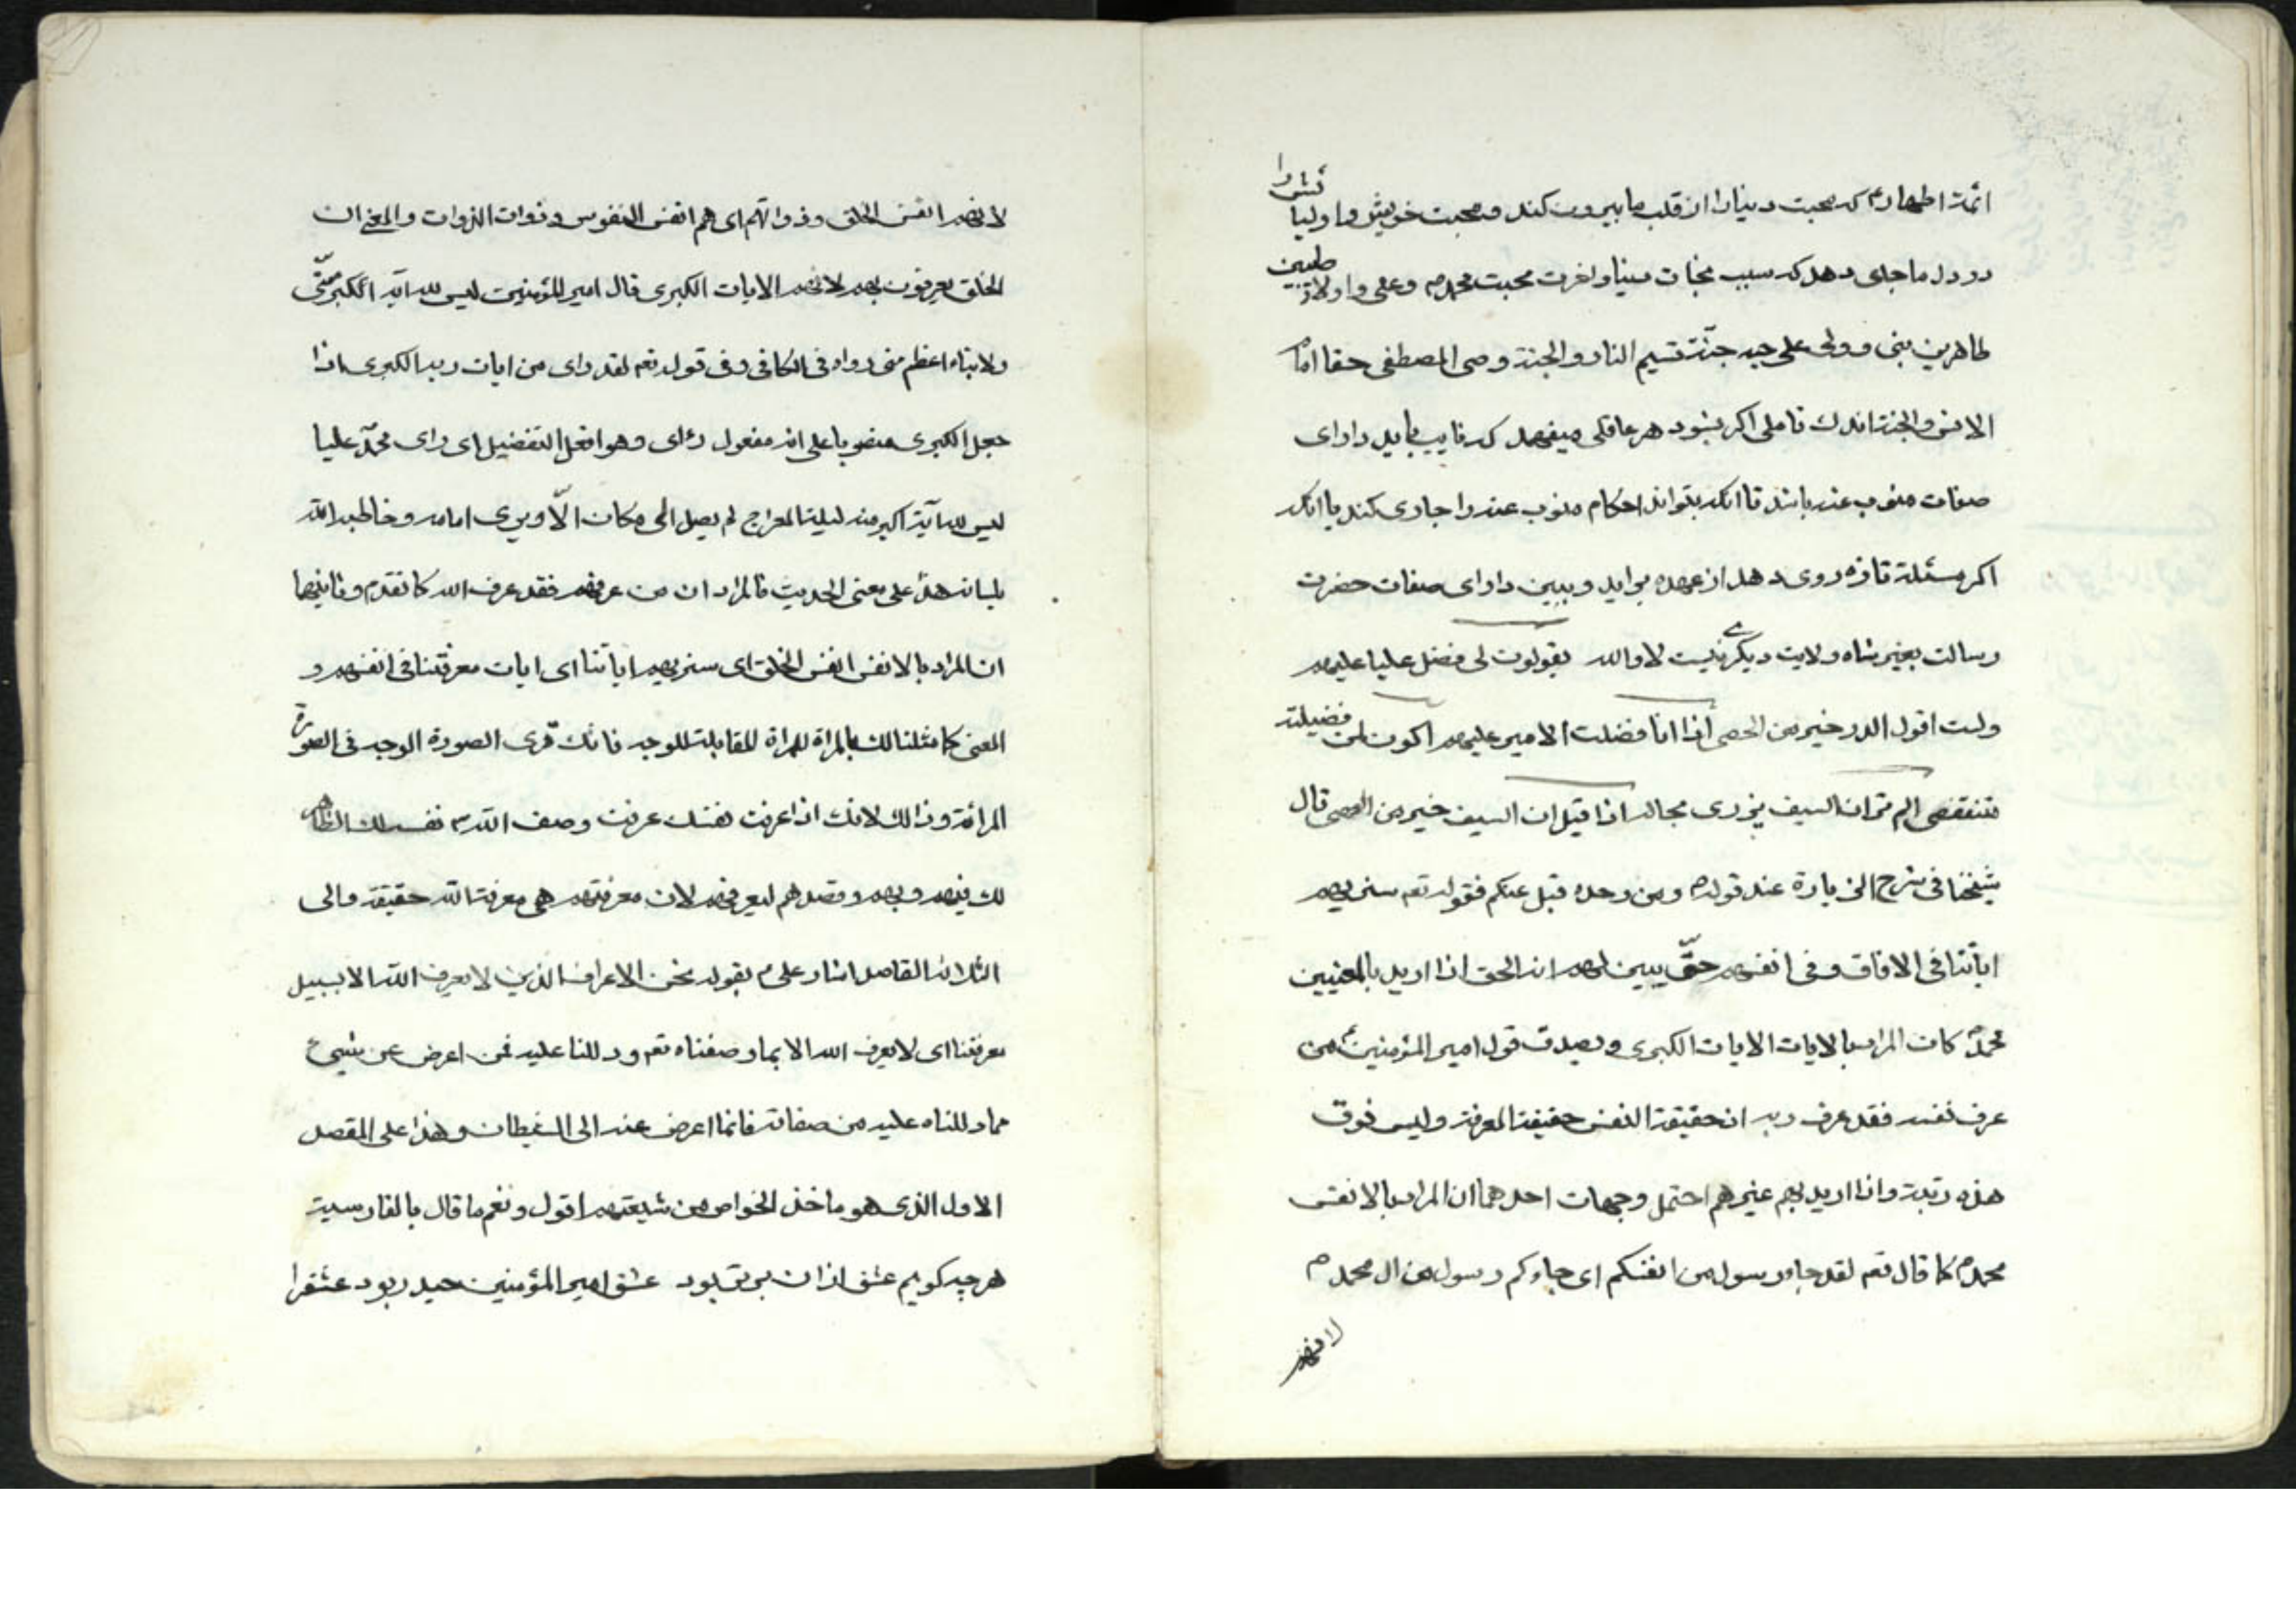 ائمة اطهار ع كه محبت دنيا را از قلب ما بيرون كند و محبت خويش و اوليائش را
در دل ما جاى دهد كه سبب نجات دنيا و اخرت محبت محمد ص و على و اولاد طيبين
طاهرين نبى و ولى على حبه جنة قسيم النار و الجنة وصى المصطفى حقا امام
الانس و الجنة اندك تاملى اكر بشود هر عاقلى ميفهمد كه نايب بايد داراى
صفات منوب عنه باشد تا انكه بتواند احكام منوب عنه را جارى كند يا انكه
اكر مسئلة تازه روى دهد از عهده بر ايد و ببين داراى صفات حضرت
رسالت بغير شاه ولايت ديكرى نيست لا والله يقولون لى فضل عليا عليهم
ولست اقول الدر خير من الحصى اذا انا فضلت الامير عليهم اكون لمن فضيلته
تنقص الم تر ان السيف يزرى بحاله اذا قيل ان السيف خير من العصى قال
شيخنا فى شرح الزيارة عند قوله ع ومن وحده قبل عنكم فقوله تعم سنريهم
اياتنا فى الافاق وفى انفسهم حتّى يبين لهم انه الحق اذا اريد بالمعنيين
محمد ص كان المراد بالايات الايات الكبرى ويصدق قول امير المؤمنين ع من
عرف نفسه فقد عرف ربه ان حقيقة النفس حقيقة المعرفة وليس فوق
هذه رتبة واذا اريد بهم غيرهم احتمل وجهات احدهما ان المراد بالانفس
محمد ص كما قال تعم لقد جاءكم رسول من انفسكم اى جاءكم رسول من ال محمد ص
لانهم
لانهم انفس الخلق وذواتهم اى هم انفس النفوس وذوات الذوات والمعنى ان
الخلق يعرفون بهم لانهم الايات الكبرى قال امير المؤمنين ليس لله آية اكبر منّى
ولا نباء اعظم منى رواه فى الكافى وفى قوله تعم لقد راى من ايات ربه الكبرى اذا
جعل الكبرى منصوبا على انه مفعول رءاى وهو افعل التفضيل اى راى محمد عليا
ليس لله آية اكبر منه ليلة المعراج لم يصل الى مكان الّا ويرى امامه وخاطبه الله
بلسانه هذا على معنى الحديث فالمراد ان من عرفهم فقد عرف الله كما تقدم وثانيهما
ان المراد بالانفس انفس الخلق اى سنريهم اياتنا اى ايات معرفتنا فى انفسهم و
المعنى كما مثلنا لك بالمراة للمراة المقابلة للوجه فانك ترى الصورة الوجه فى الصورة
المرائة وذالك لانك اذا عرفت نفسك عرفت وصف الله نفسه لك الظاهر
لك فيهم وبهم وقصدهم ليعرفهم لان معرفتهم هى معرفة الله حقيقة والى
الثلاثة القاصد اشار على ع بقوله نحن الاعراف الذين لا يعرف الله الا بسبيل
معرفتنا اى لا يعرف الله الا بما وصفناه تعم ودللنا عليه فمن اعرض عن شيئ
مما دللناه عليه من صفاته فانما اعرض عنه الى الشيطان وهذا على المقصد
الاول الذى هو ماخذ الخواص من شيعتهم اقول ونعم ما قال بالفارسية
هر چه كويم عشق ازان برتر بود عشق امير المؤمنين حيدر بود عشقرا